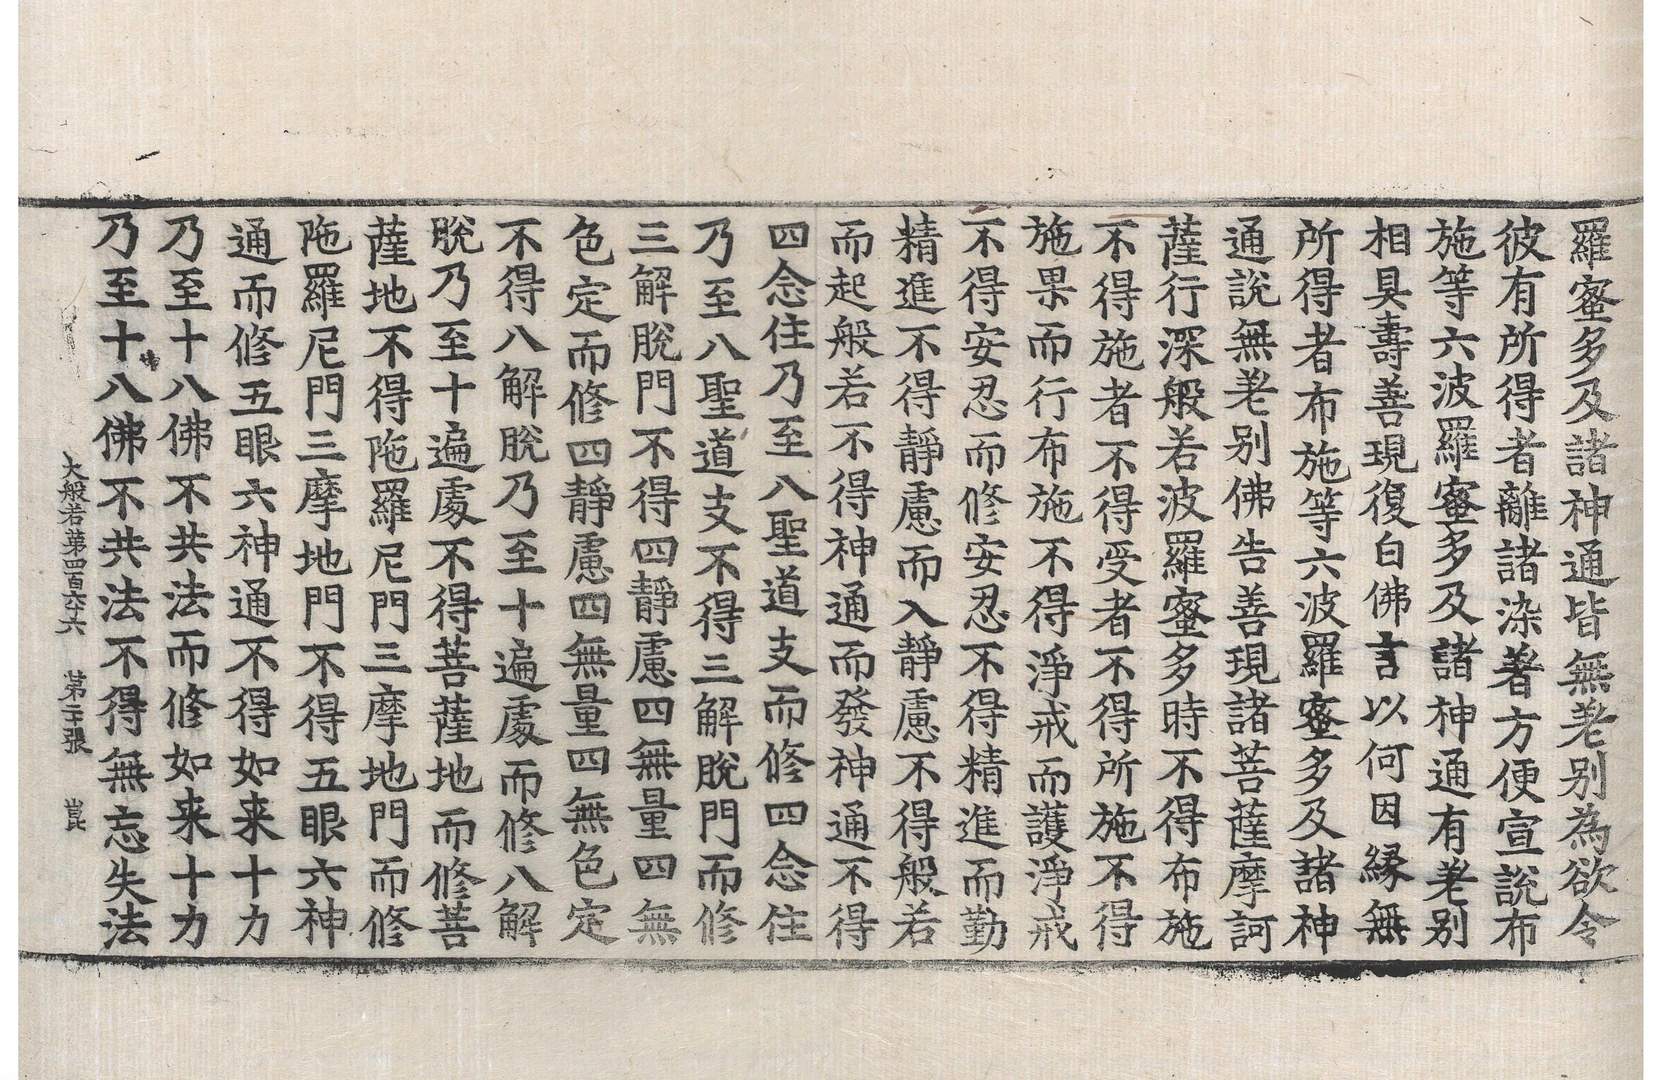 羅蜜多及諸神通皆無差别為欲令
彼有所得者離諸染著方便宣說布
施等六波羅蜜多及諸神通有差别
相具壽善現復白佛言以何因縁無
所得者布施等六波羅蜜多及諸神
通說無差别佛告善現諸菩薩摩訶
薩行深般若波羅蜜多時不得布施
不得施者不得受者不得所施不得
施果而行布施不得淨戒而護淨戒
不得安忍而修安忍不得精進而勤
精進不得靜慮而入靜慮不得般若
而起般若不得神通而發神通不得
四念住乃至八聖道支而修四念住
乃至八聖道支不得三解脫門而修
三解脫門不得四靜慮四無量四無
色定而修四靜慮四無量四無色定
不得八解脫乃至十遍處而修八解
脫乃至十遍處不得菩薩地而修菩
薩地不得陁羅尼門三摩地門而修
陁羅尼門三摩地門不得五眼六神
通而修五眼六神通不得如来十力
乃至十八佛不共法而修如来十力
乃至十八佛不共法不得無忘失法
大般若第四百六十六 第二十張 崑